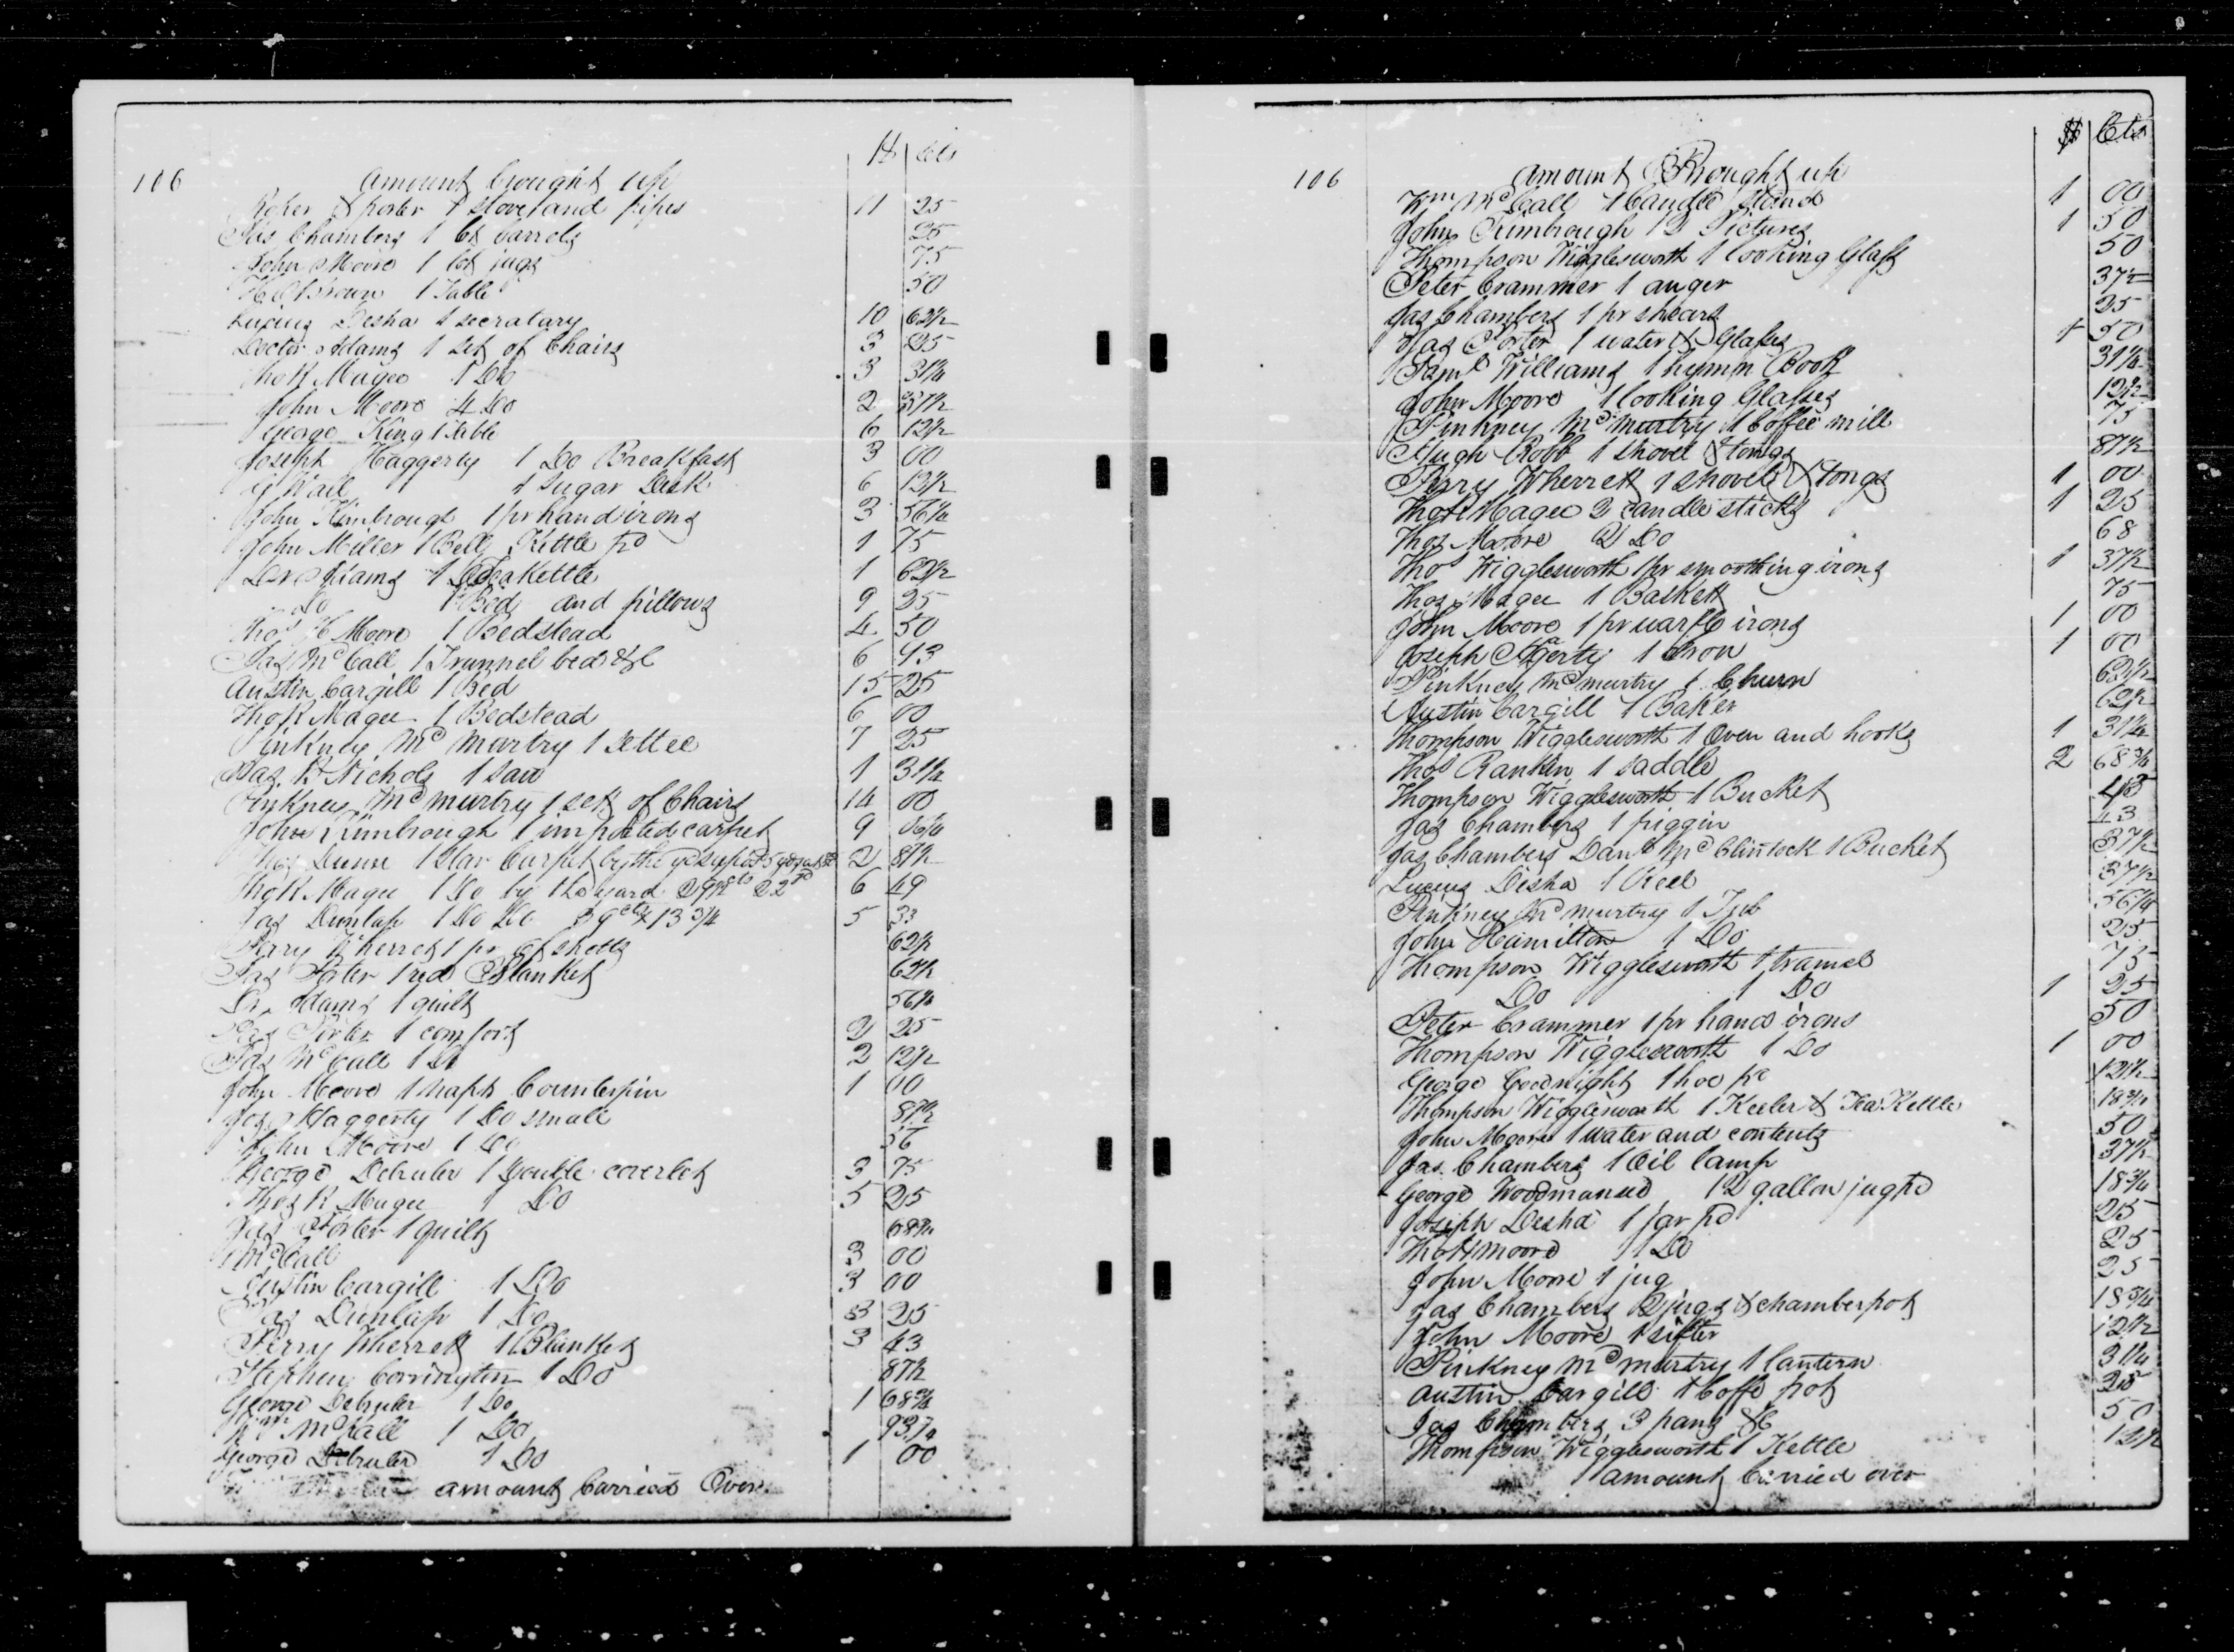 $ | Cts
106 amount brought up
Roper & porter 1 stove and pipes 11 25
Jas Chambers 1 lot barrels 25
John Moore 1 lot jugs 75
1 Table 50
Lucius Desha 1 secratary 10 62½
Doctor Adams 1 set of Chairs 3 25
Tho R Magee 1 Do 3 31¼
John Moore 4 Do 2 37½
George King 1 table 6 12½
Joseph Haggerty 1 Do Breakfast 3 00
G Wall 1 Sugar Desk 6 12½
John Kimbrough 1 pr handirons 3 56¼
John Miller 1 Bell Kettle pd 1 75
Dr Adams 1 Teakettle 1 62½
Do 1 Bed and pillows 9 25
Thos H Moore 1 Bedstead 4 50
Jas McCall 1 Trunnel bed &c 6 93
Austin Cargill 1 Bed 15 25
Tho R Magee 1 Bedstead 6 00
Pinkney McMurtry 1 settee 7 25
Jas R Nichols 1 saw 1 31½
Pinkney McMurtry 1 set of Chairs 14 00
John Kimbrough 1 imported carpet 9 06¼
Thos Dunn 1 Star Carpet by the 2 87½
Tho R Magee 1 Do by the yard 29½ cts 22 yd 6 49
Jas Dunlap 1 Do Do 39 cts 13¾ 5 33
Perry Wherret 1 pr of sheets 62½
Jas Porter 1 red Blanket 62½
Dr Adams 1 quilt 56¼
Jas Porter 1 comfort 2 25
Jas McCall 1 Do 2 12½
John Moore 1 napt Counterpin 1 00
Jos Haggerty 1 Do small 87½
John Moore 1 Do 56
George Debruler 1 Double coverlet 3 75
Thos R Magee 1 Do 5 25
Jas Porter 1 quilt 68¾
McCall 3 00
Austin Cargill 1 Do 3 00
Jas Dunlap 1 Do 3 25
Perry Wherrett 1 Blanket 3 43
Stephen Corrington 1 Do 87½
George Debruler 1 Do 1 68¾
Wm McCall 1 Do 93¾
George Debruler 1 Do 1 00
amount Carried Over
$ | Cts
106 amount Brought up
Wm McCall 1 Candle Stand 1 00
John Kimbrough 12 Pictures 1 50
Thompson Wigglesworth 1 looking Glass 50
Peter Crammer 1 auger 37½
Jas Chambers 1 pr shears 25
Jas Porter 1 water & Glasses 1 50
Saml Williams 1 hymn Book 31¼
John Moore 1 looking Glasses 12½
Pinkney McMurtry 1 Coffee mill 75
Hugh Robb 1 shovel & tongs 87½
Perry Wherrett 1 shovel & tongs 1 00
Tho R Magee 2 candlesticks 1 25
Thos Moore 2 Do 68
Thos Wigglesworth 1 pr smoothing irons 1 37½
Thos Magee 1 Baskett 75
John Moore 1 pr warfle irons 1 00
Joseph Hagerty 1 Iron 1 00
Pinkney McMurtry 1 Churn 62½
Austin Cargill 1 Baker 62½
Thompson Wigglesworth 1 Oven and hooks 1 31¼
Thos Rankin 1 saddle 2 68¾
Thompson Wigglesworth 1 Bucket 43
Jas Chambers 1 piggin 43
Jas Chambers Danl McClintock 1 Bucket 37½
Lucius Desha 1 Reel 37½
Pinkney McMurtry 1 Tub 56¼
John Hamilton 1 Do 25
Thompson Wigglesworth 1 tramel 75
Do 1 Do 1 25
Peter Crammer 1 pr hand irons 50
Thompson Wigglesworth 1 Do 1 00
George Goodnight 1 hoe pd 12½
Thompson Wigglesworth 1 Keeler & Tea Kettle 18¾
John Moore 1 water and contents 50
Jas Chambers 1 Oil lamp 37½
George Woodmansee 1 2 gallon jug pd 18¾
Joseph Desha 1 jar pd 25
Tho H Moore 1 Do 25
John Moore 1 jug 25
Jas Chambers 2 jugs & chamberpot 18¾
John Moore 1 sifter 12½
Pinkney McMurtry 1 lantern 31¼
Austin Cargill 1 Coffe pot 25
Jas Chambers 3 pans &c 50
Thompson Wigglesworth 1 Kettle 12½
amount Carried over